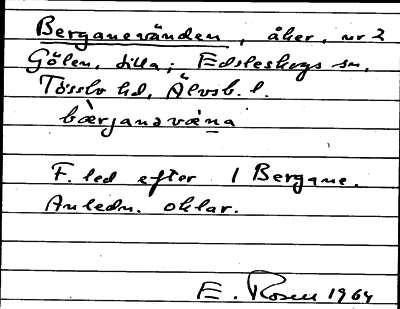 Berganevänden, åker, nr 2
Gölen, lilla; Edsleskogs sn,
Tössbo hd, Älvsb. l.
bærjanəvæna
F. led efter 1 Bergane.
Anledn. oklar.
E. Rosen 1964